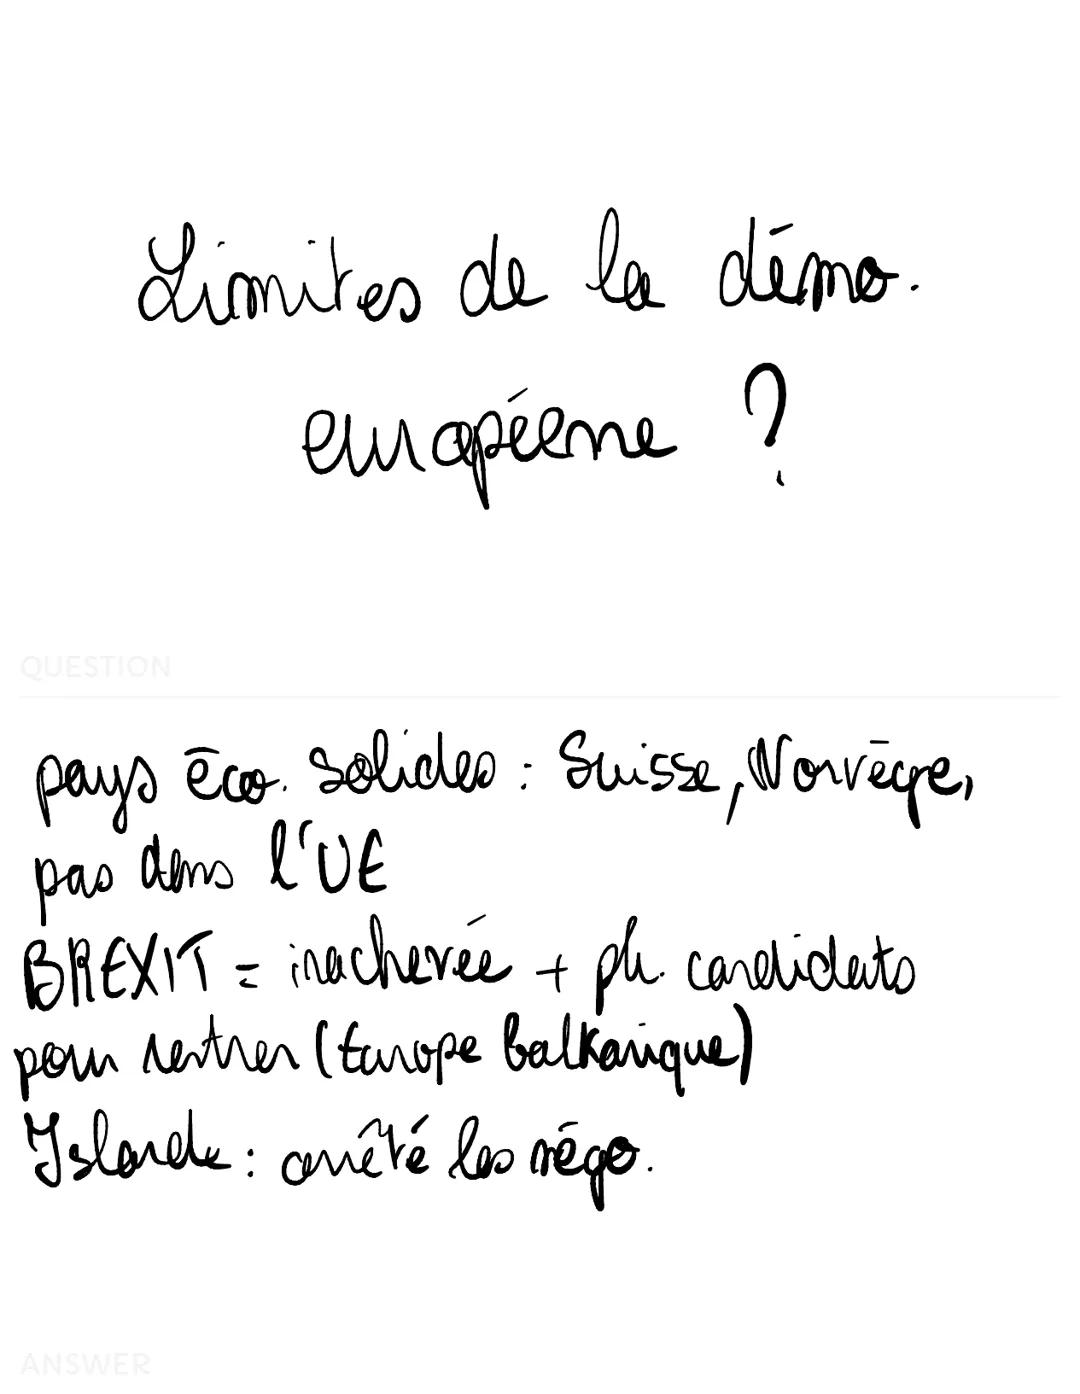 Limites de la démo.
européenne ?
QUESTION
pays éco. solides : Suisse, Norvège,
pas dans l'UE
BREXIT = inachevée + ph. candidats
pour rentrer (Europe balkanique)
Islande : arrêté les négo.
ANSWER